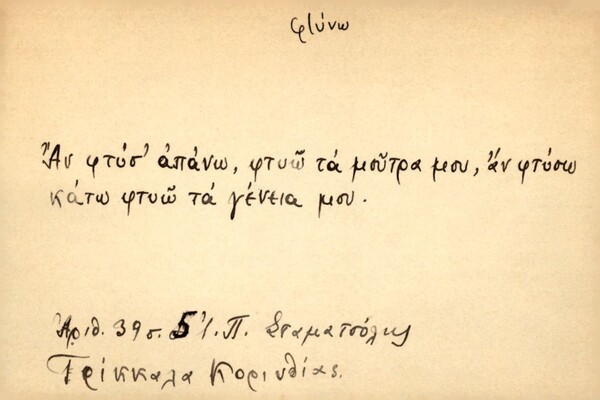 φτύνω
Ἂν φτύσ' ἀπάνω, φτυῶ τά μοῦτρα μου, ἄν φτύσω
κάτω φτυῶ τά γένεια μου.
Ἀριθ. 39 σ. 5 Ἰ. Π. Σταματούλης
Τρίκκαλα Κορινθίας.